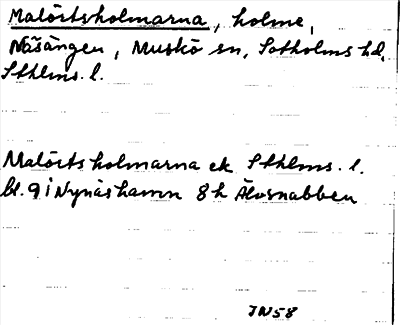 Malörtsholmarna, holme,
Näsängen, Muskö sn, Sotholms hd,
Sthlms. l.
Malörtsholmarna ek Sthlms. l.
bl. 9 i Nynäshamn 8h Älvsnabben
JN58